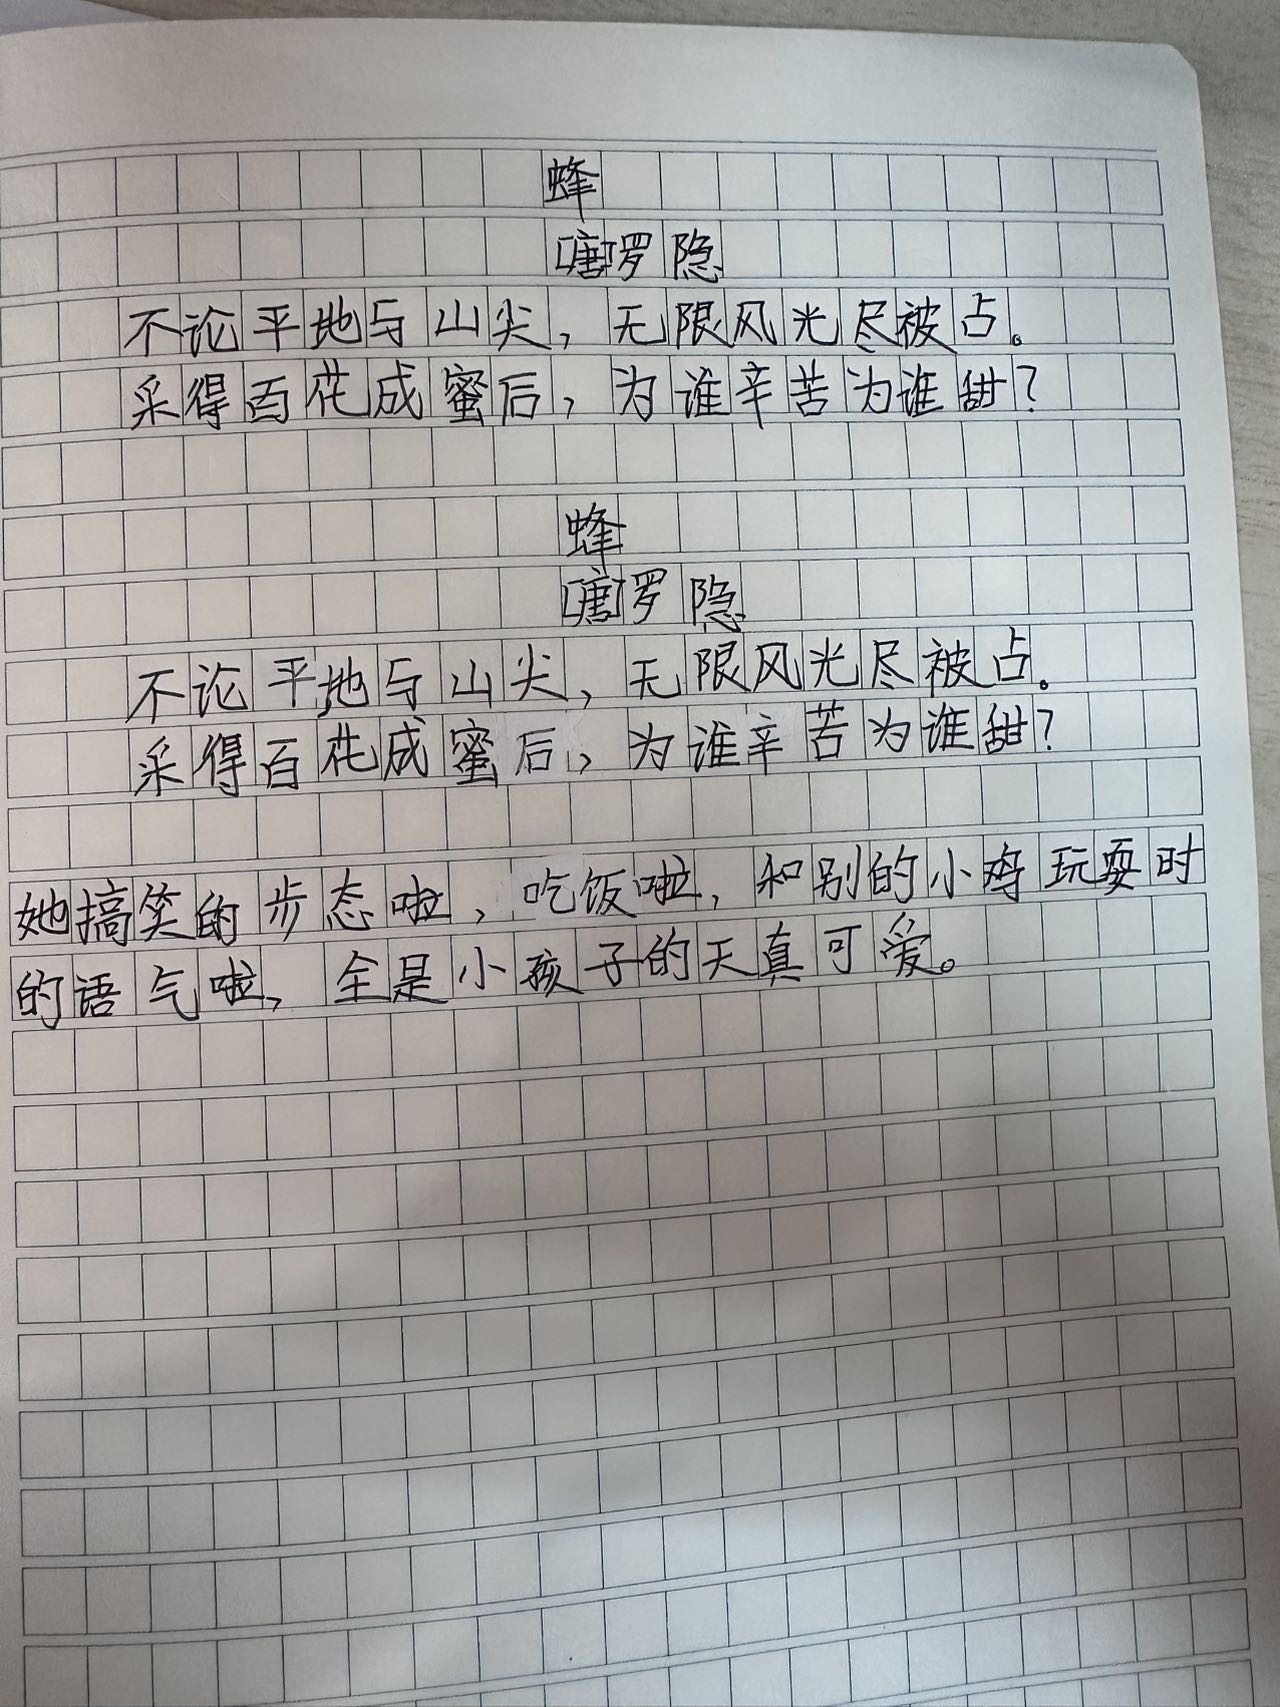 蜂
[唐]罗隐
不论平地与山尖，无限风光尽被占。
采得百花成蜜后，为谁辛苦为谁甜？
蜂
[唐]罗隐
不论平地与山尖，无限风光尽被占。
采得百花成蜜后，为谁辛苦为谁甜？
她搞笑的步态啦，吃饭啦，和别的小鸡玩耍时
的语气啦，全是小孩子的天真可爱。